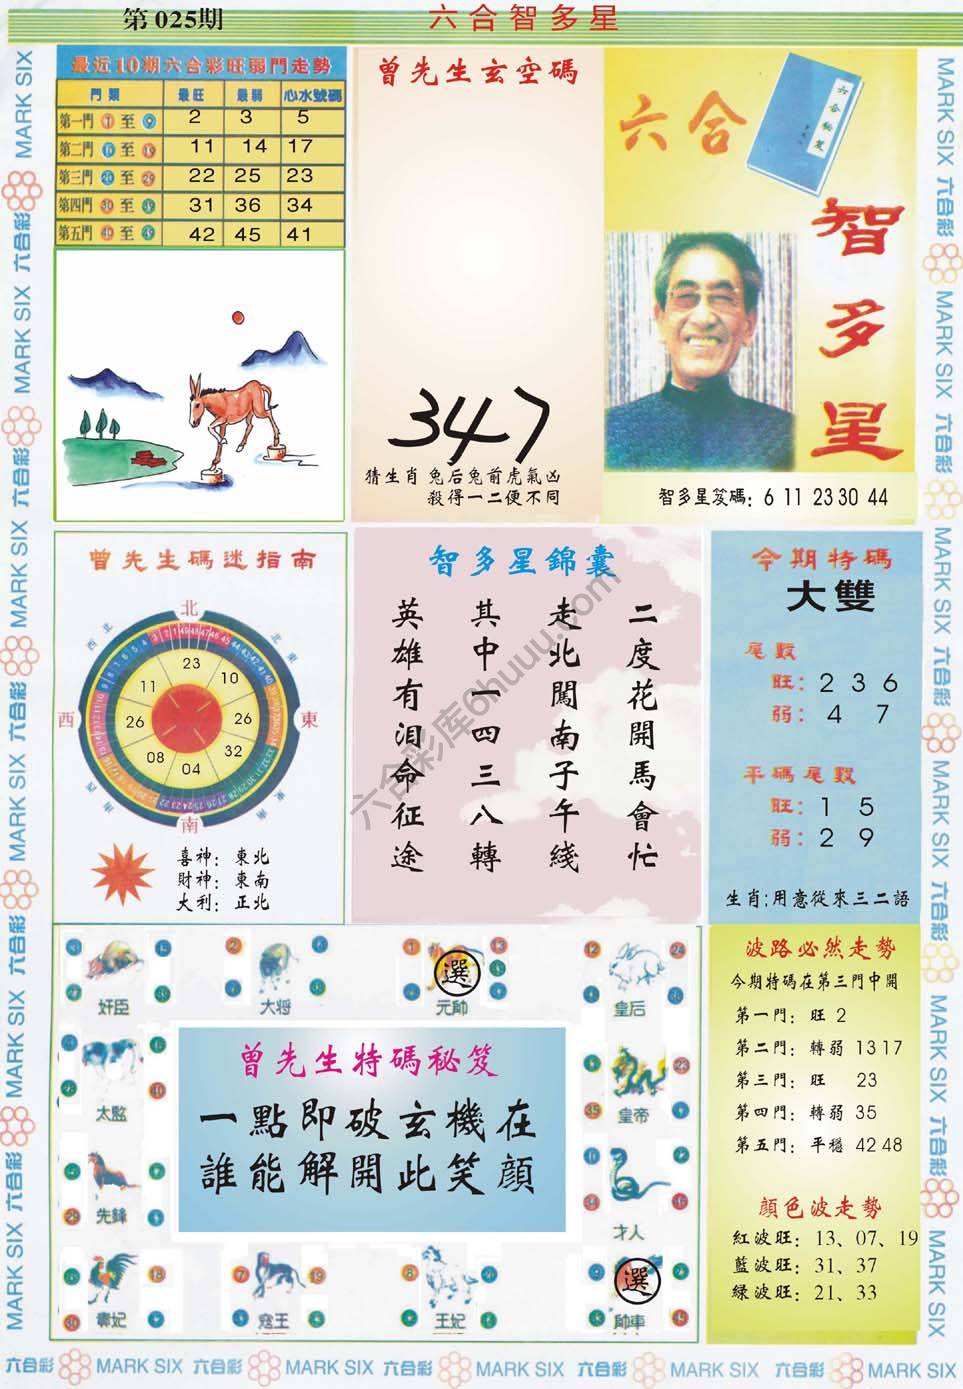 第 025期
六合智多星
最近10期六合彩旺弱門走勢
門類 最旺 最弱 心水號碼
第一門 1 至 9 2 3 5
第二門 10 至 19 11 14 17
第三門 20 至 29 22 25 23
第四門 30 至 39 31 36 34
第五門 40 至 49 42 45 41
曾先生玄空碼
347
猜生肖 兔后兔前虎氣凶
殺得一二便不同
六合
六合秘笈
智多星
智多星笈碼: 6 11 23 30 44
曾先生碼迷指南
北
西北
東北
西
東
西南
東南
南
23
10
26
32
04
08
26
11
喜神: 東北
財神: 東南
大利: 正北
智多星錦囊
二度花開馬會忙
走北闖南子午綫
其中一四三八轉
英雄有泪命征途
今期特碼
大雙
尾數
旺: 2 3 6
弱: 4 7
平碼尾數
旺: 1 5
弱: 2 9
生肖:用意從來三二語
奸臣
大将
元帥
選
皇后
太監
皇帝
先鋒
才人
寇王
王妃
帥車
選
曾先生特碼秘笈
一點即破玄機在
誰能解開此笑顔
波路必然走勢
今期特碼在第三門中開
第一門: 旺 2
第二門: 轉弱 13 17
第三門: 旺 23
第四門: 轉弱 35
第五門: 平穩 42 48
顔色波走勢
紅波旺: 13、07、19
藍波旺: 31、37
緑波旺: 21、33
六合彩库6huuu.com
MARK SIX 六合彩